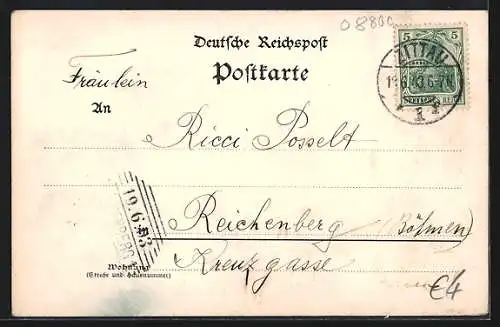 08800
Deutsche Reichspost
Postkarte
5 5
ZITTAU
19.6.03.6-7N.
1
Fräulein
An
Ricci Posselt
Reichenberg (Böhmen)
19.6.03
Wohnung
(Straße und Hausnummer)
Kreuzgasse
€4